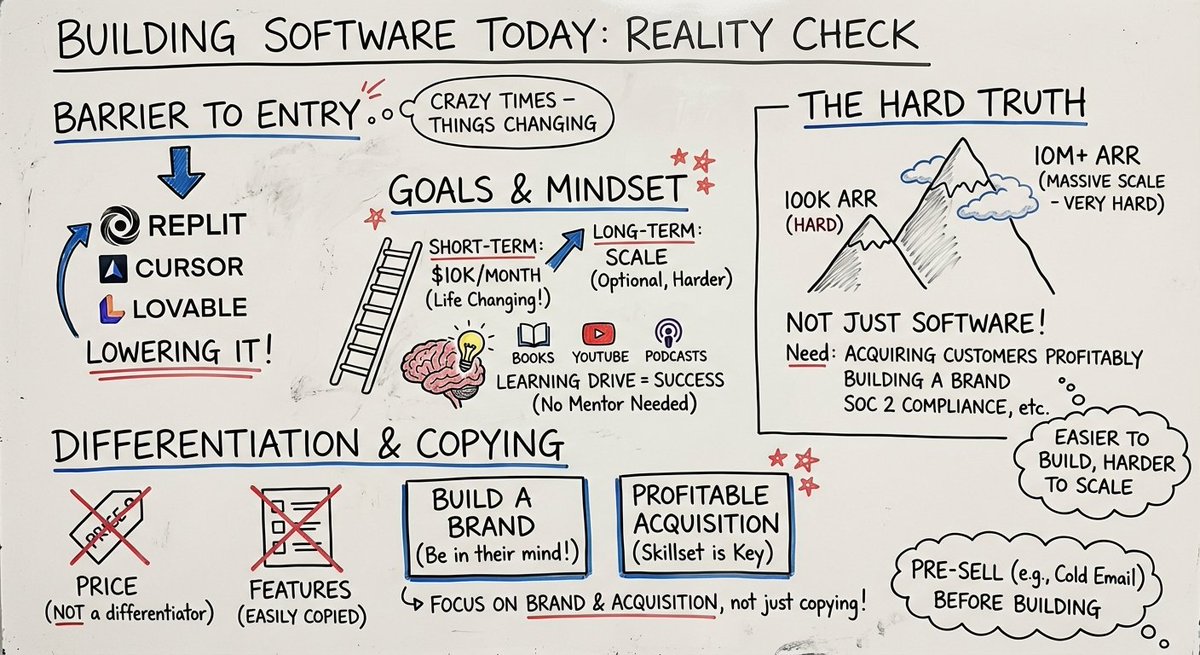 BUILDING SOFTWARE TODAY: REALITY CHECK
BARRIER TO ENTRY
CRAZY TIMES –
THINGS CHANGING
REPLIT
CURSOR
LOVABLE
LOWERING IT!
GOALS & MINDSET
SHORT-TERM:
$10K/MONTH
(Life Changing!)
LONG-TERM:
SCALE
(Optional, Harder)
BOOKS
YOUTUBE
PODCASTS
LEARNING DRIVE = SUCCESS
(No Mentor Needed)
THE HARD TRUTH
100K ARR
(HARD)
10M+ ARR
(MASSIVE SCALE
- VERY HARD)
NOT JUST SOFTWARE!
Need: ACQUIRING CUSTOMERS PROFITABLY
BUILDING A BRAND
SOC 2 COMPLIANCE, etc.
EASIER TO
BUILD, HARDER
TO SCALE
DIFFERENTIATION & COPYING
PRICE
PRICE
(NOT a differentiator)
FEATURES
(EASILY COPIED)
BUILD A
BRAND
(Be in their mind!)
PROFITABLE
ACQUISITION
(Skillset is Key)
FOCUS ON BRAND & ACQUISITION, not just copying!
PRE-SELL (e.g., Cold Email)
BEFORE BUILDING